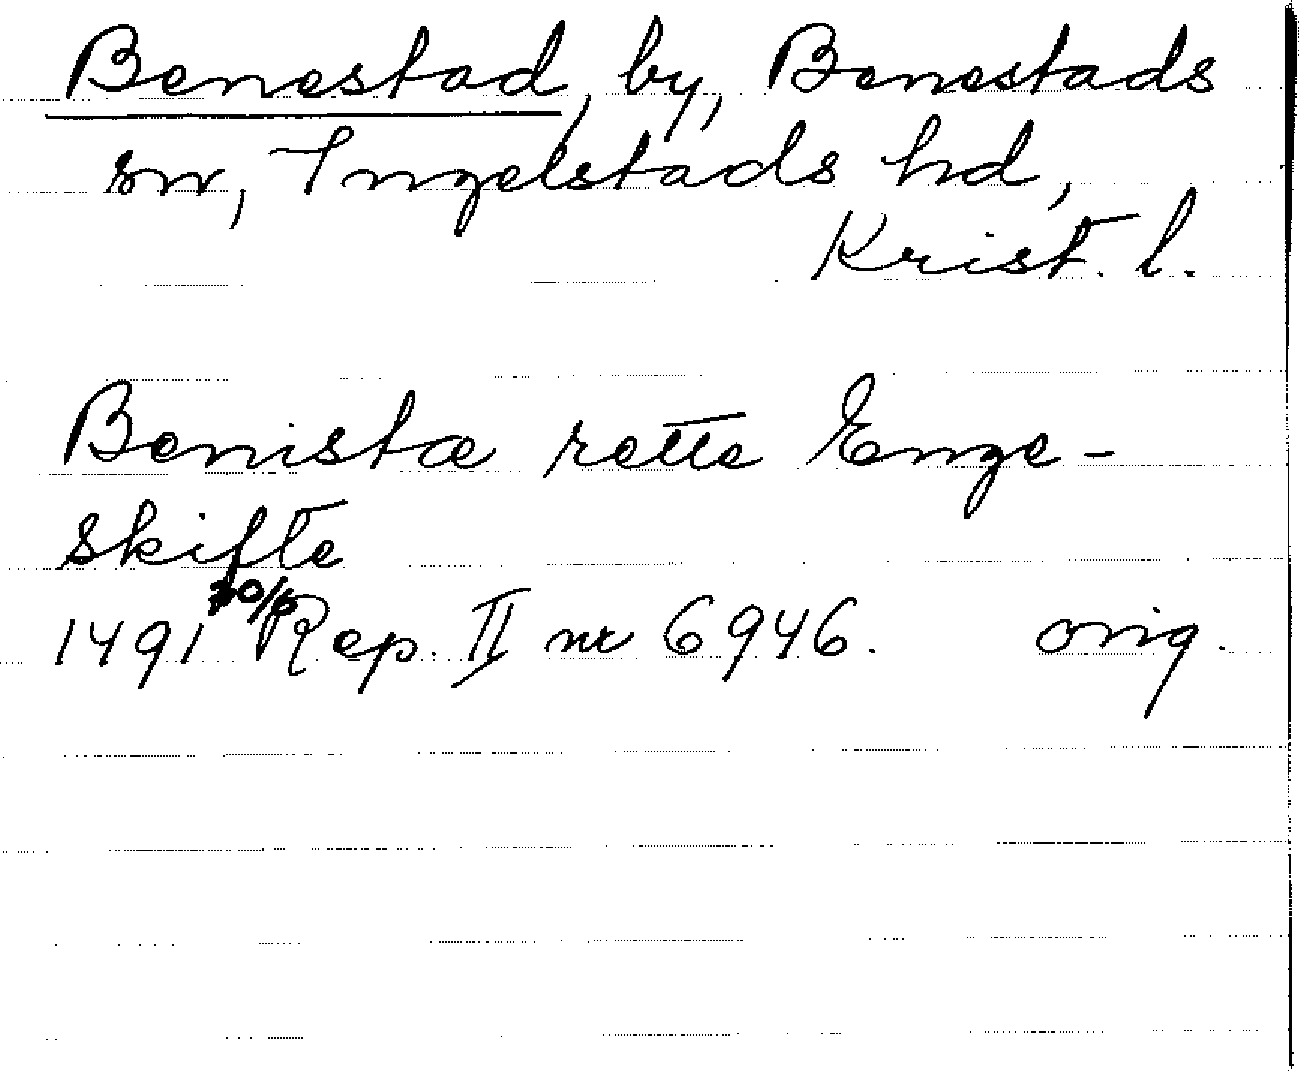 Benestad, by, Benestads
sn, Ingelstads hd,
Krist. l.
Benistæ rette Enge-
skifte
1491 30/6 Rep. II nr 6946. orig.